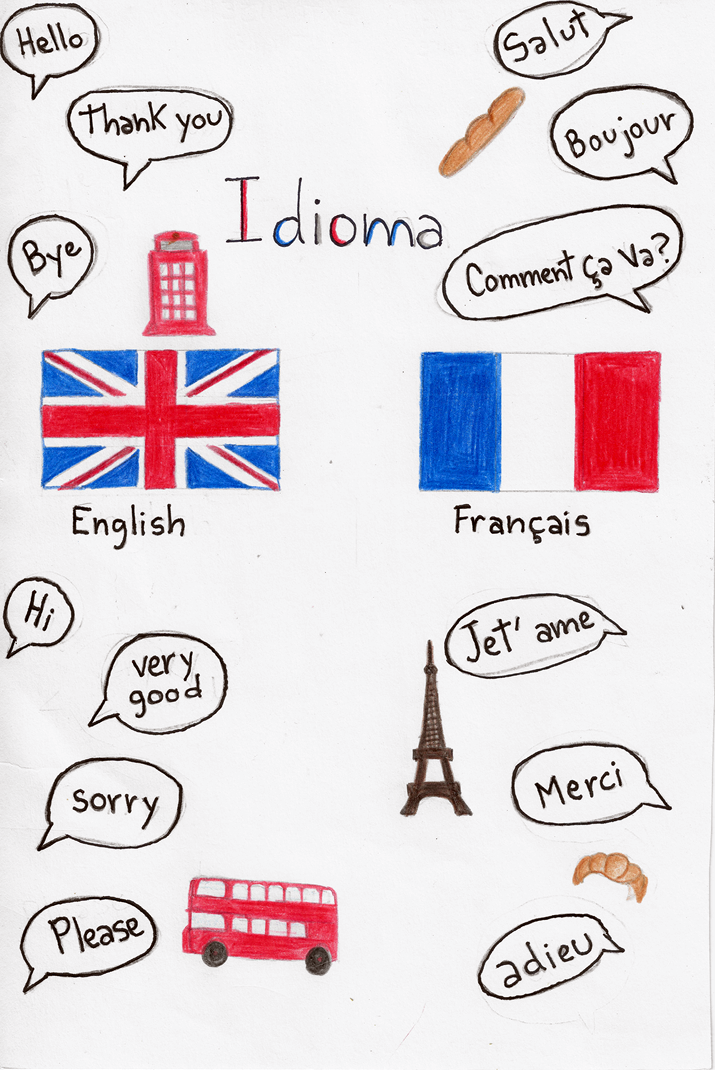 Hello
Salut
Thank you
Boujour
Idioma
Bye
Comment ça va?
English
Français
Hi
Jet' ame
very
good
Merci
sorry
Please
adieu